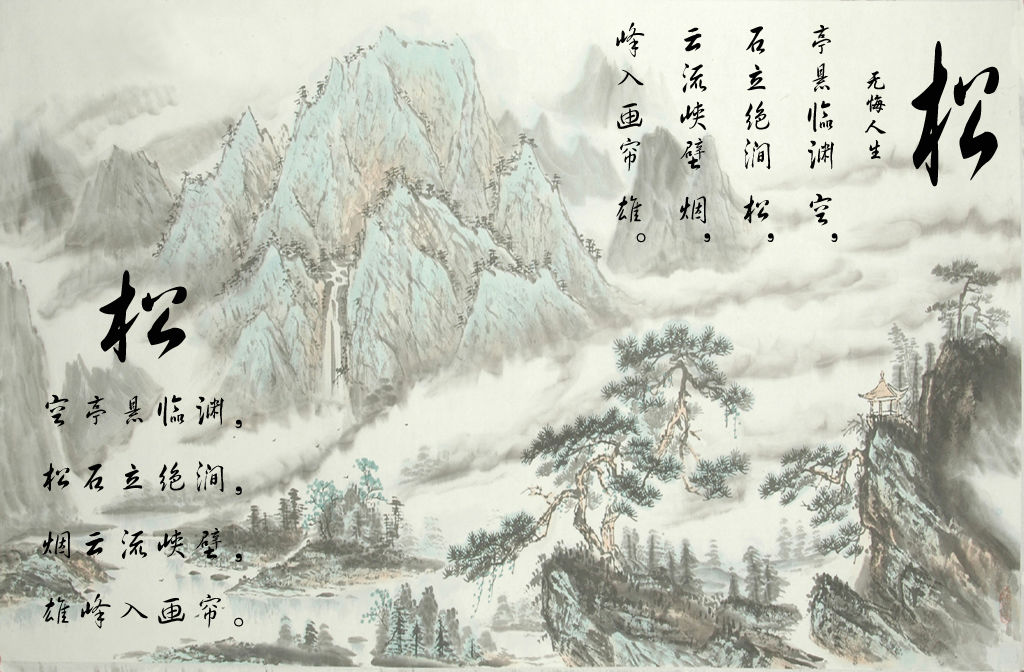 松
无悔人生
亭悬临渊空，
石立绝涧松，
云流峡壁烟，
峰入画帘雄。
松
空亭悬临渊，
松石立绝涧，
烟云流峡壁，
雄峰入画帘。